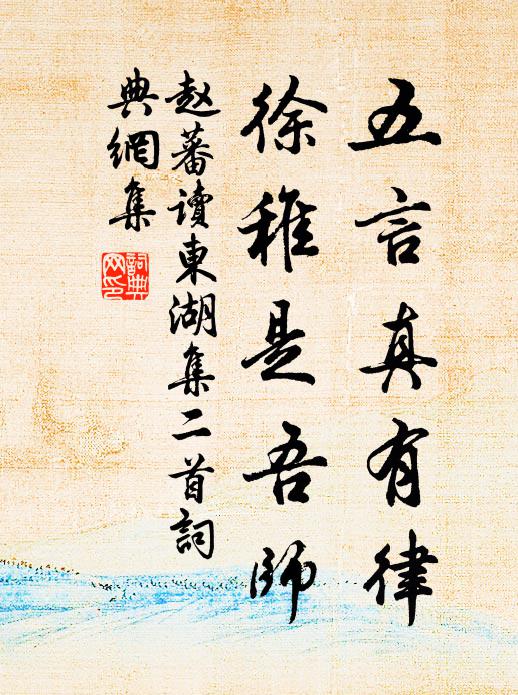 五言真有律
徐稚是吾師
赵蕃讀東湖集二首詞
典網集
詞典
网印